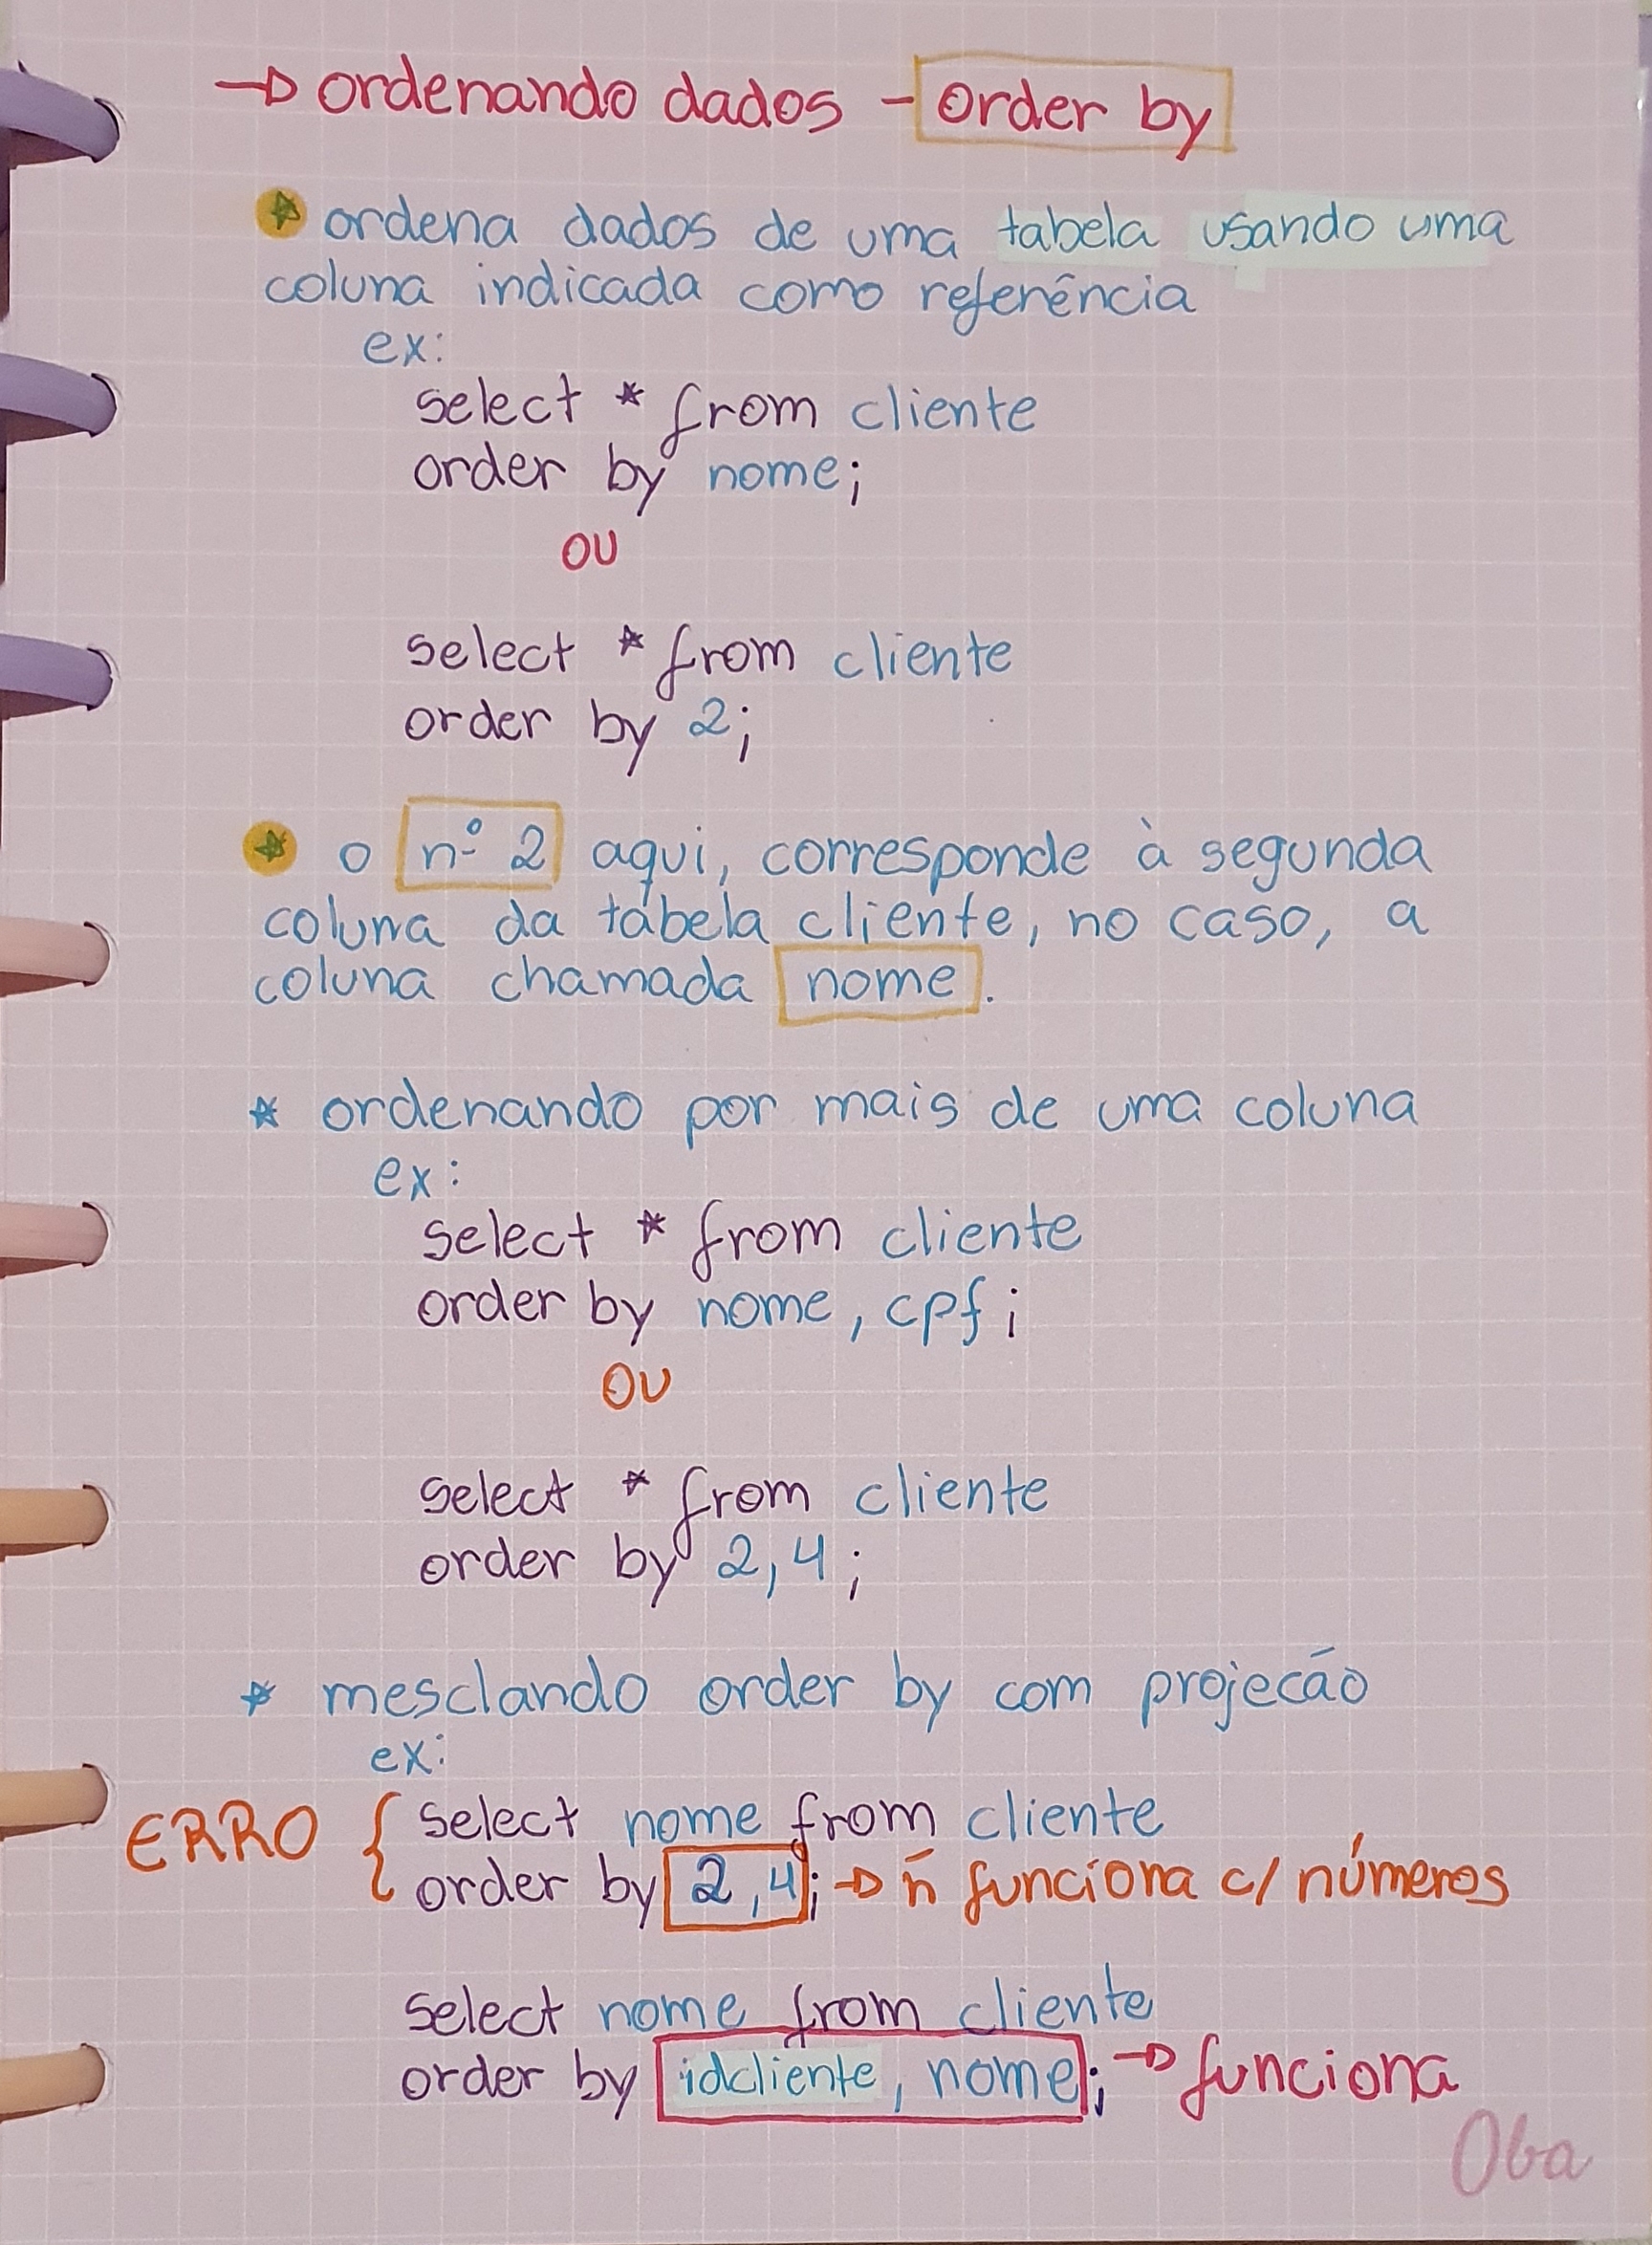 → ordenando dados - order by
☆ ordena dados de uma tabela usando uma
coluna indicada como referência
ex:
select * from cliente
order by nome;
OU
select * from cliente
order by 2;
☆ o nº 2 aqui, corresponde à segunda
coluna da tabela cliente, no caso, a
coluna chamada nome.
* ordenando por mais de uma coluna
ex:
select * from cliente
order by nome, cpf;
OU
select * from cliente
order by 2,4;
* mesclando order by com projecão
ex:
ERRO { select nome from cliente
order by 2,4; → ñ funciona c/ números
select nome from cliente
order by idcliente, nome; → funciona
Oba